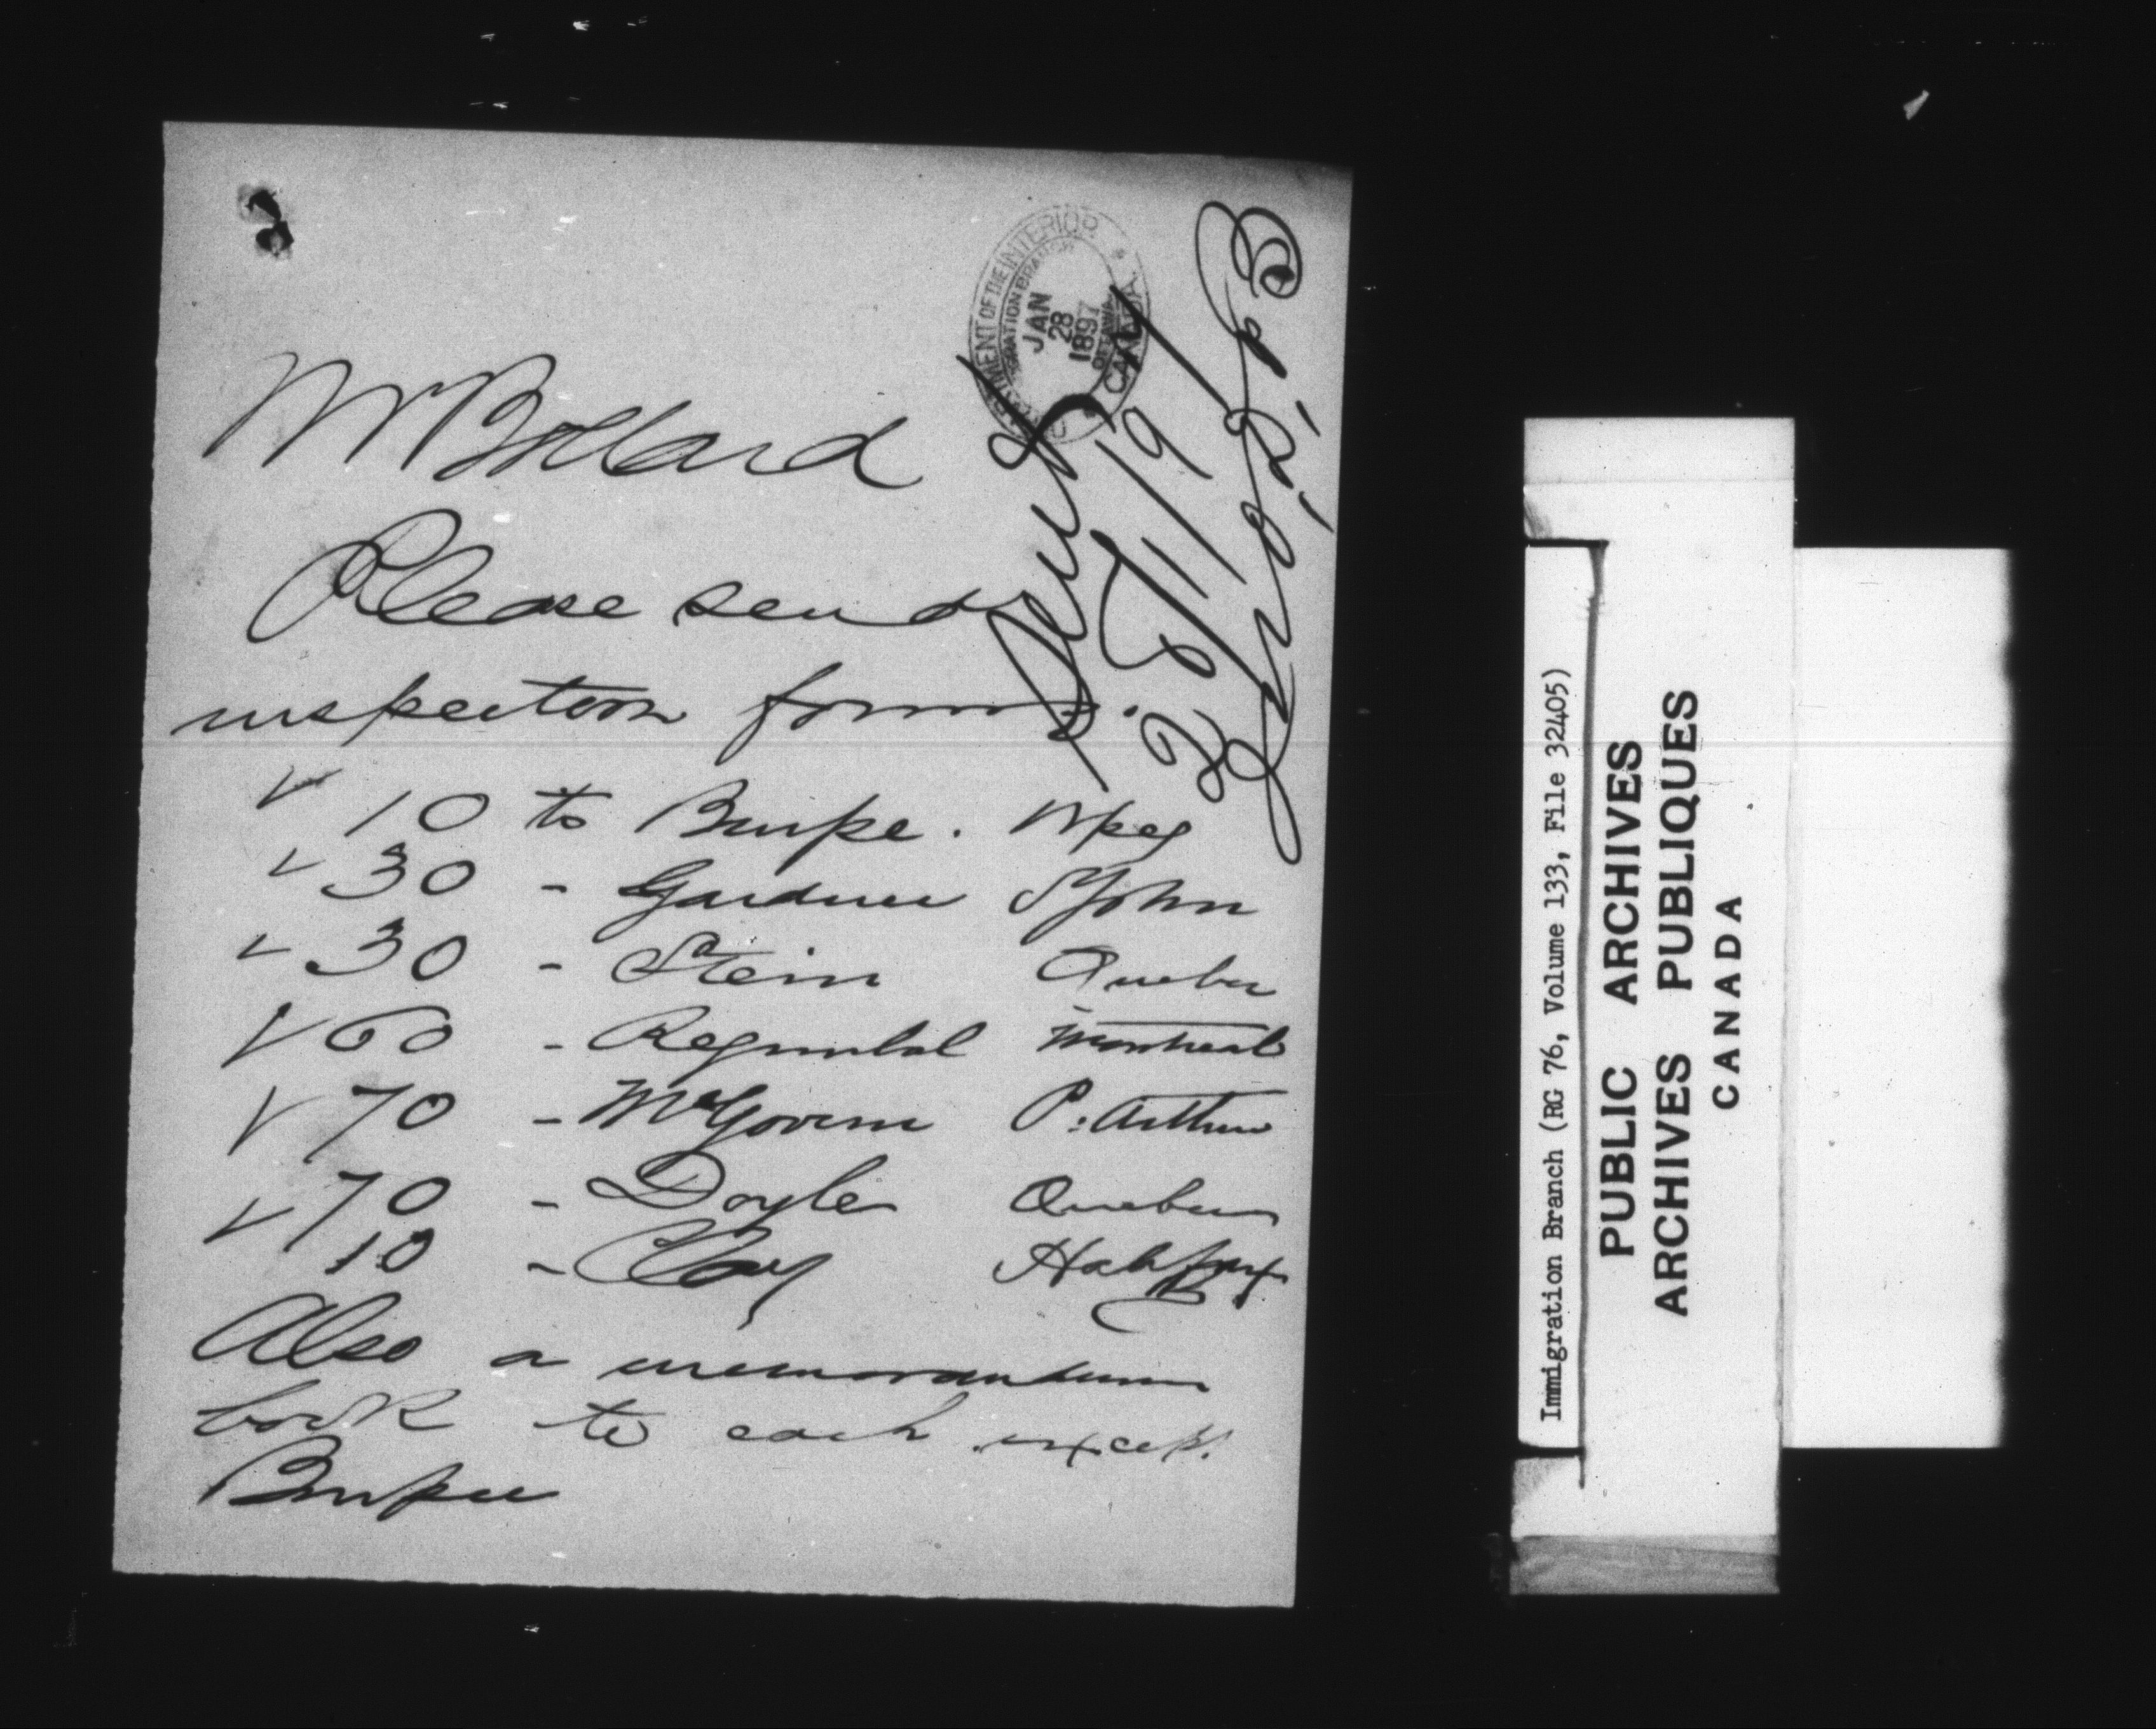 DEPARTMENT OF THE INTERIOR
IMMIGRATION BRANCH
JAN
28
1897
OTTAWA
CANADA.
Mr Bollard
Please send
inspection forms.
10 to Burpe. Wpeg
30 - Gardner St John
30 - Stein Quebec
60 - Regimbal Montreal
70 - McGovern P. Arthur
70 - Doyle Quebec
10 - Clay Halifax
Also a memorandum
book to each except
Burpee
Sent
28/1/97
Immigration Branch (RG 76, Volume 133, File 32405)
PUBLIC ARCHIVES
ARCHIVES PUBLIQUES
CANADA